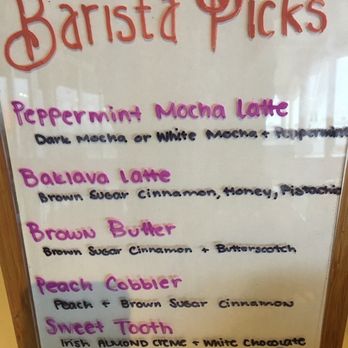 Barista Picks
Peppermint Mocha Latte
Dark Mocha or White Mocha + Peppermint
Baklava Latte
Brown Sugar Cinnamon, Honey, Pistachio
Brown Butter
Brown Sugar Cinnamon + Butterscotch
Peach Cobbler
Peach + Brown Sugar Cinnamon
Sweet Tooth
Irish ALMOND CREME + White Chocolate